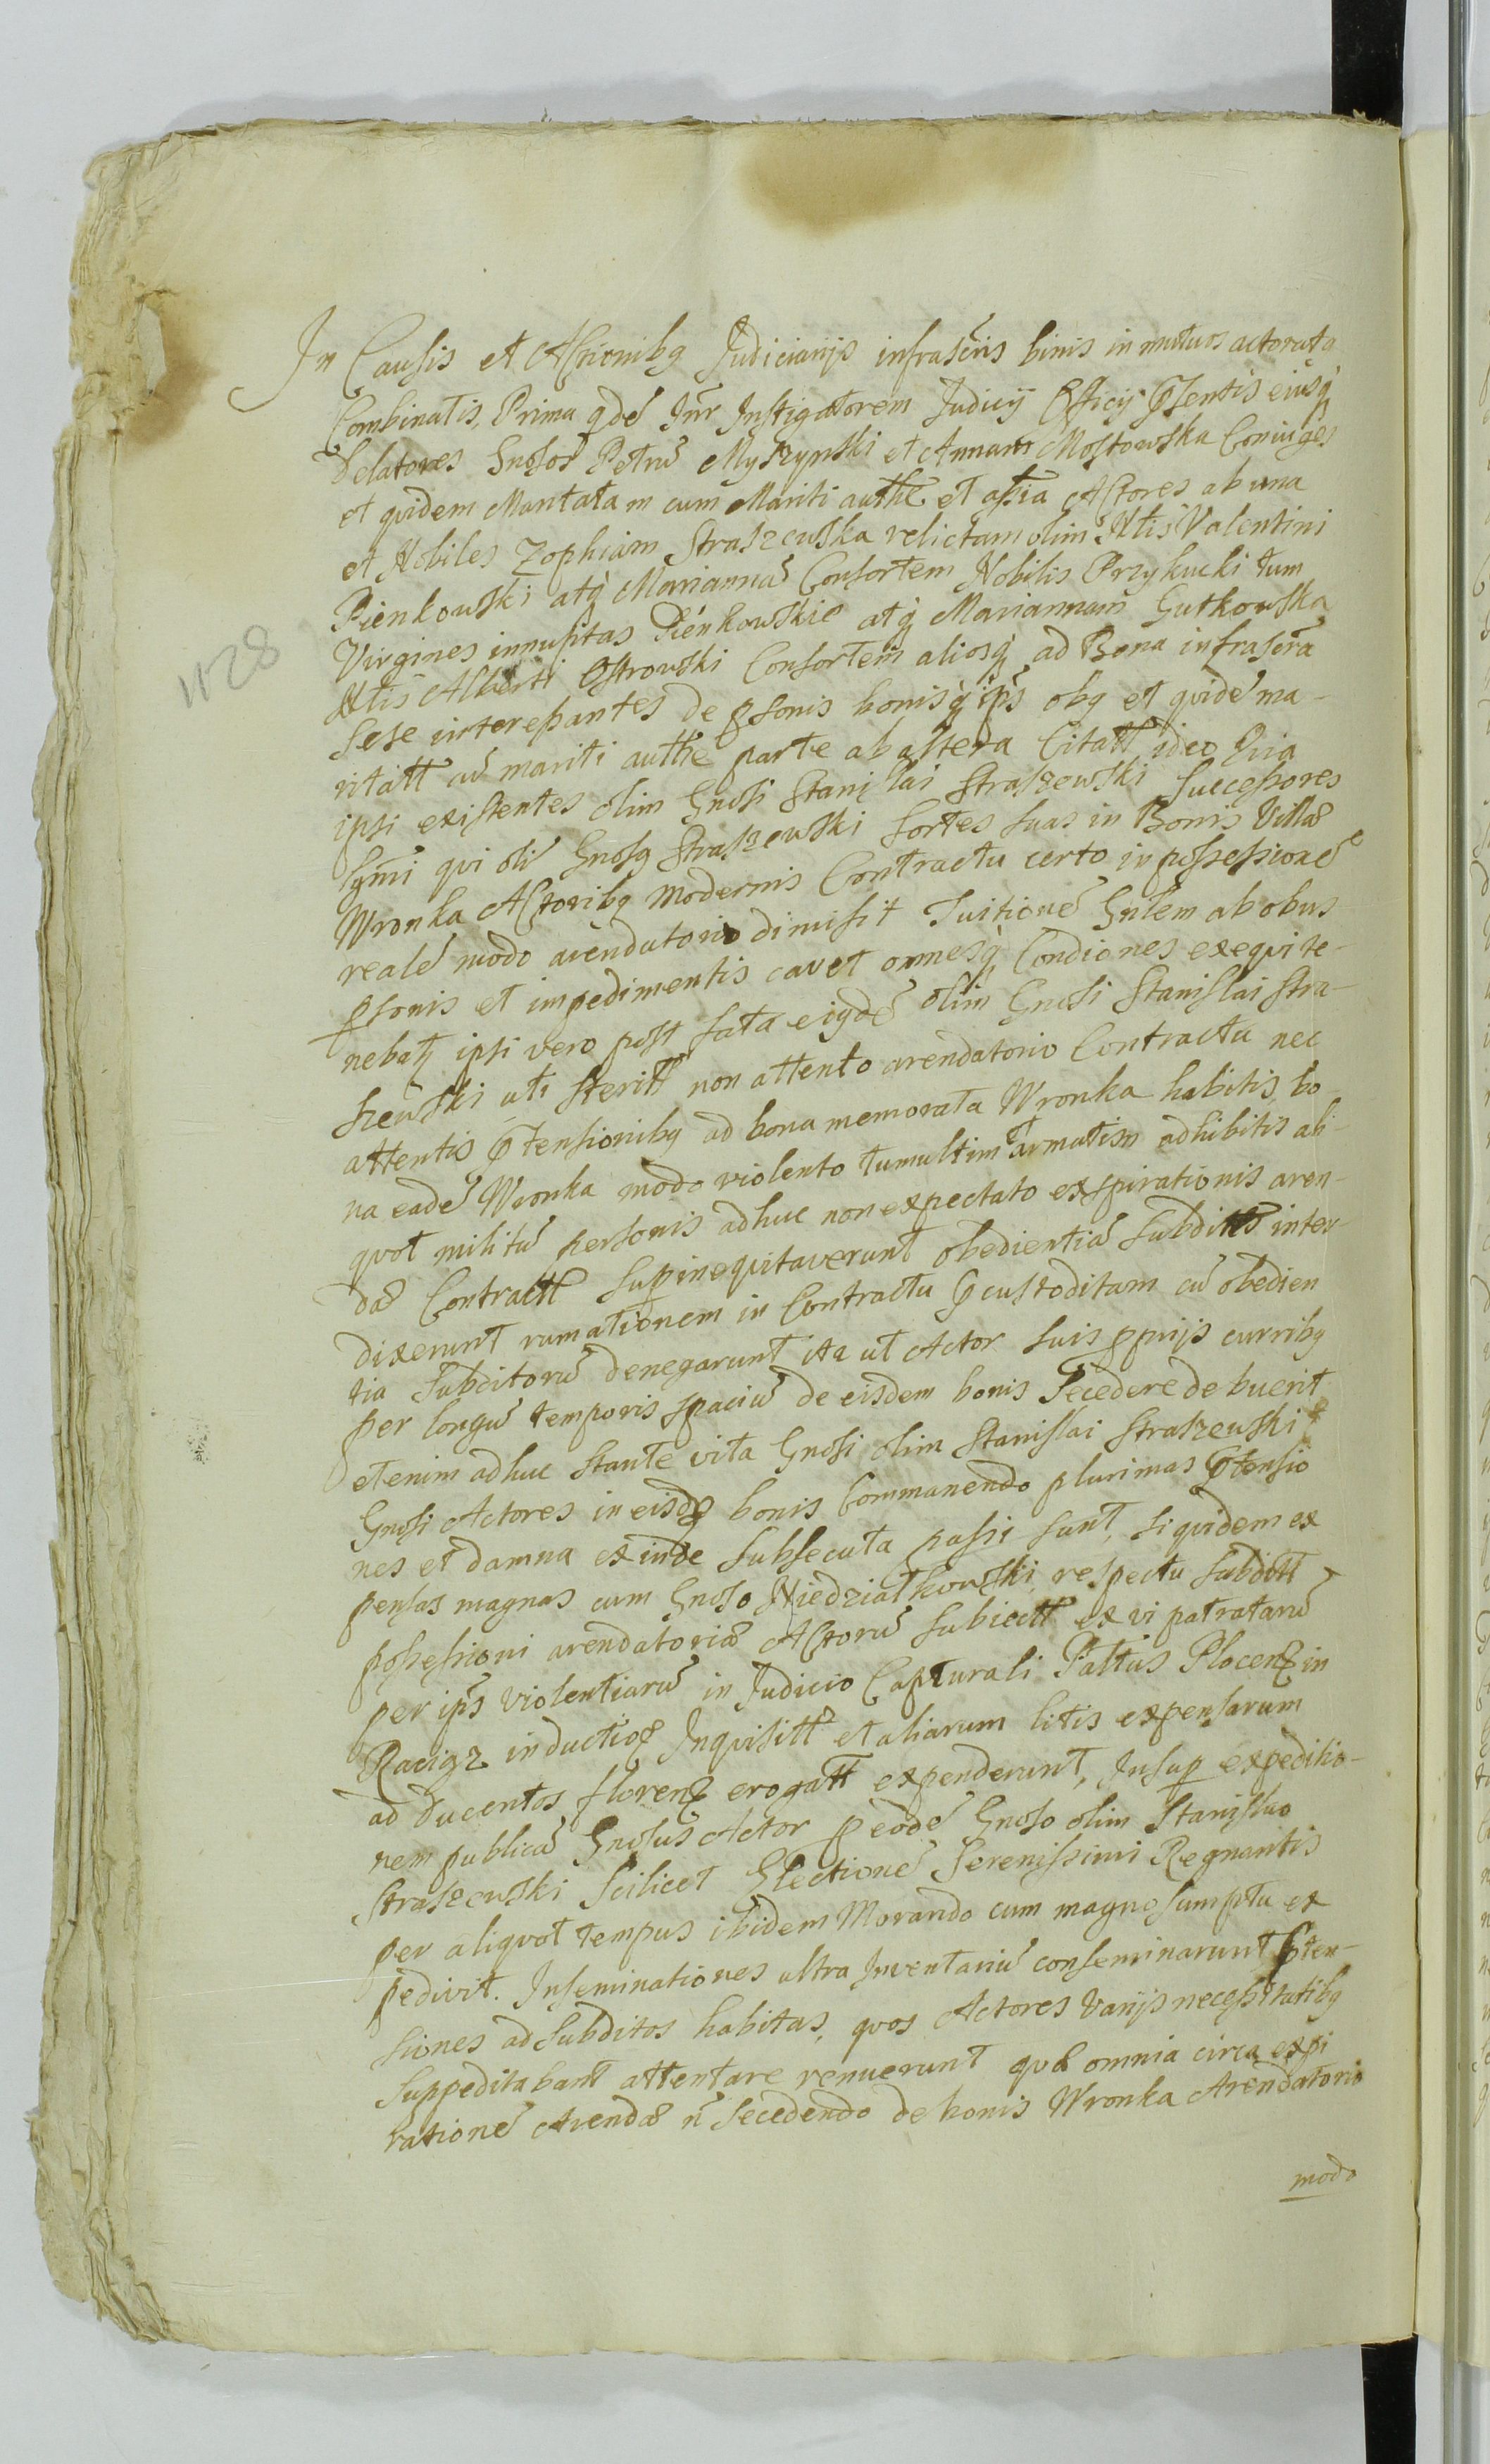 In Causis et Actionibq Judiciarijs infrascris binis in mutuos actorata
Combinatis, Prima qde Intr Instigatorem Judicij Officij Pntis eiusq
Delatores Gnosos Petrū Myszynski et Annam Mostowska Coniuges
et quidem Maritatam cum Mariti authe et assia Actores ab una
et Nobiles Zophiam Straszewska relictam olim Nlis Valentini
Pienkowski atq Mariannā Consortem Nobilis Przykucki tum
Virgines innuptas Pienkowskie atq Mariannam Gutkowska
Nlis Alberti Ostrowski Consortem aliosq ad Bona infrascra
sese interessantes de psonis bonisq ips obq et quidē ma-
ritatt cū mariti authe parte ab altera Citatt ideo Quia
ipsi existentes olim Gnosi Stanislai Straszewski Successores
qui oli Gnosq Straszewski sortes suas in Bonis Villæ
Wronka Actoribq modernis Contractu certo in possessionē
realē modo arendatorio dimisit Tuitionē Gnlem ab obus
psonis et impedimentis cavet omnesq Condiones exequi te-
nebatr ipsi vero post fata eiqdē olim Gnosi Stanislai Stra-
szewski uti fferitt non attento arendatorio Contractu nec
attentis Ptensionibq ad bona memorata Wronka habitis, bo-
na eadē Wronka modo violento tumultim armatim adhibitis ali-
quot militū personis adhuc non expectato exspirationis aren-
dæ Contractt supinequitaverunt obedientiā subditis inter-
dixerunt rumationem in Contractu Pcustoditam cū obedien
tia Subditorū denegarunt ita ut Actor suis pprijs curribq
per longū temporis spaciū de eisdem bonis secedere debuerit
etenim adhuc stante vita Gnosi olim Stanislai Straszewski
Gnosi Actores in eisdz bonis Commanendo plurimas Ptensio
nes et damna exinde subsecuta passi sunt, siquidem ex
pensas magnas cum Gnoso Niedzialkowski respectu subditt
possessioni arendatoriæ Actorū subiectt ex vi patratarū
per ips violentiarū in Judicio Capturali Paltus Plocenz in
Raciąz inductiōq Inquisitt et aliarum litis expensarum
ad ducentos florenz erogatt expenderunt, Insup expeditio-
nem publicā Gnosus Actor p eodē Gnoso olim Stanislao
Straszewski scilicet Electionē Serenissimi Regnantis
per aliquot tempus ibidem Morando cum magno sumptu ex
pedivit. Inseminationes ultra Inventariū conseminarunt Pten-
siones ad subditos habitas, quos Actores varijs necessitatibq
suppeditabant attentare renuerunt quæ omnia circa expi
rationē Arendæ n secedendo de bonis Wronka Arendatorio
modo
1128